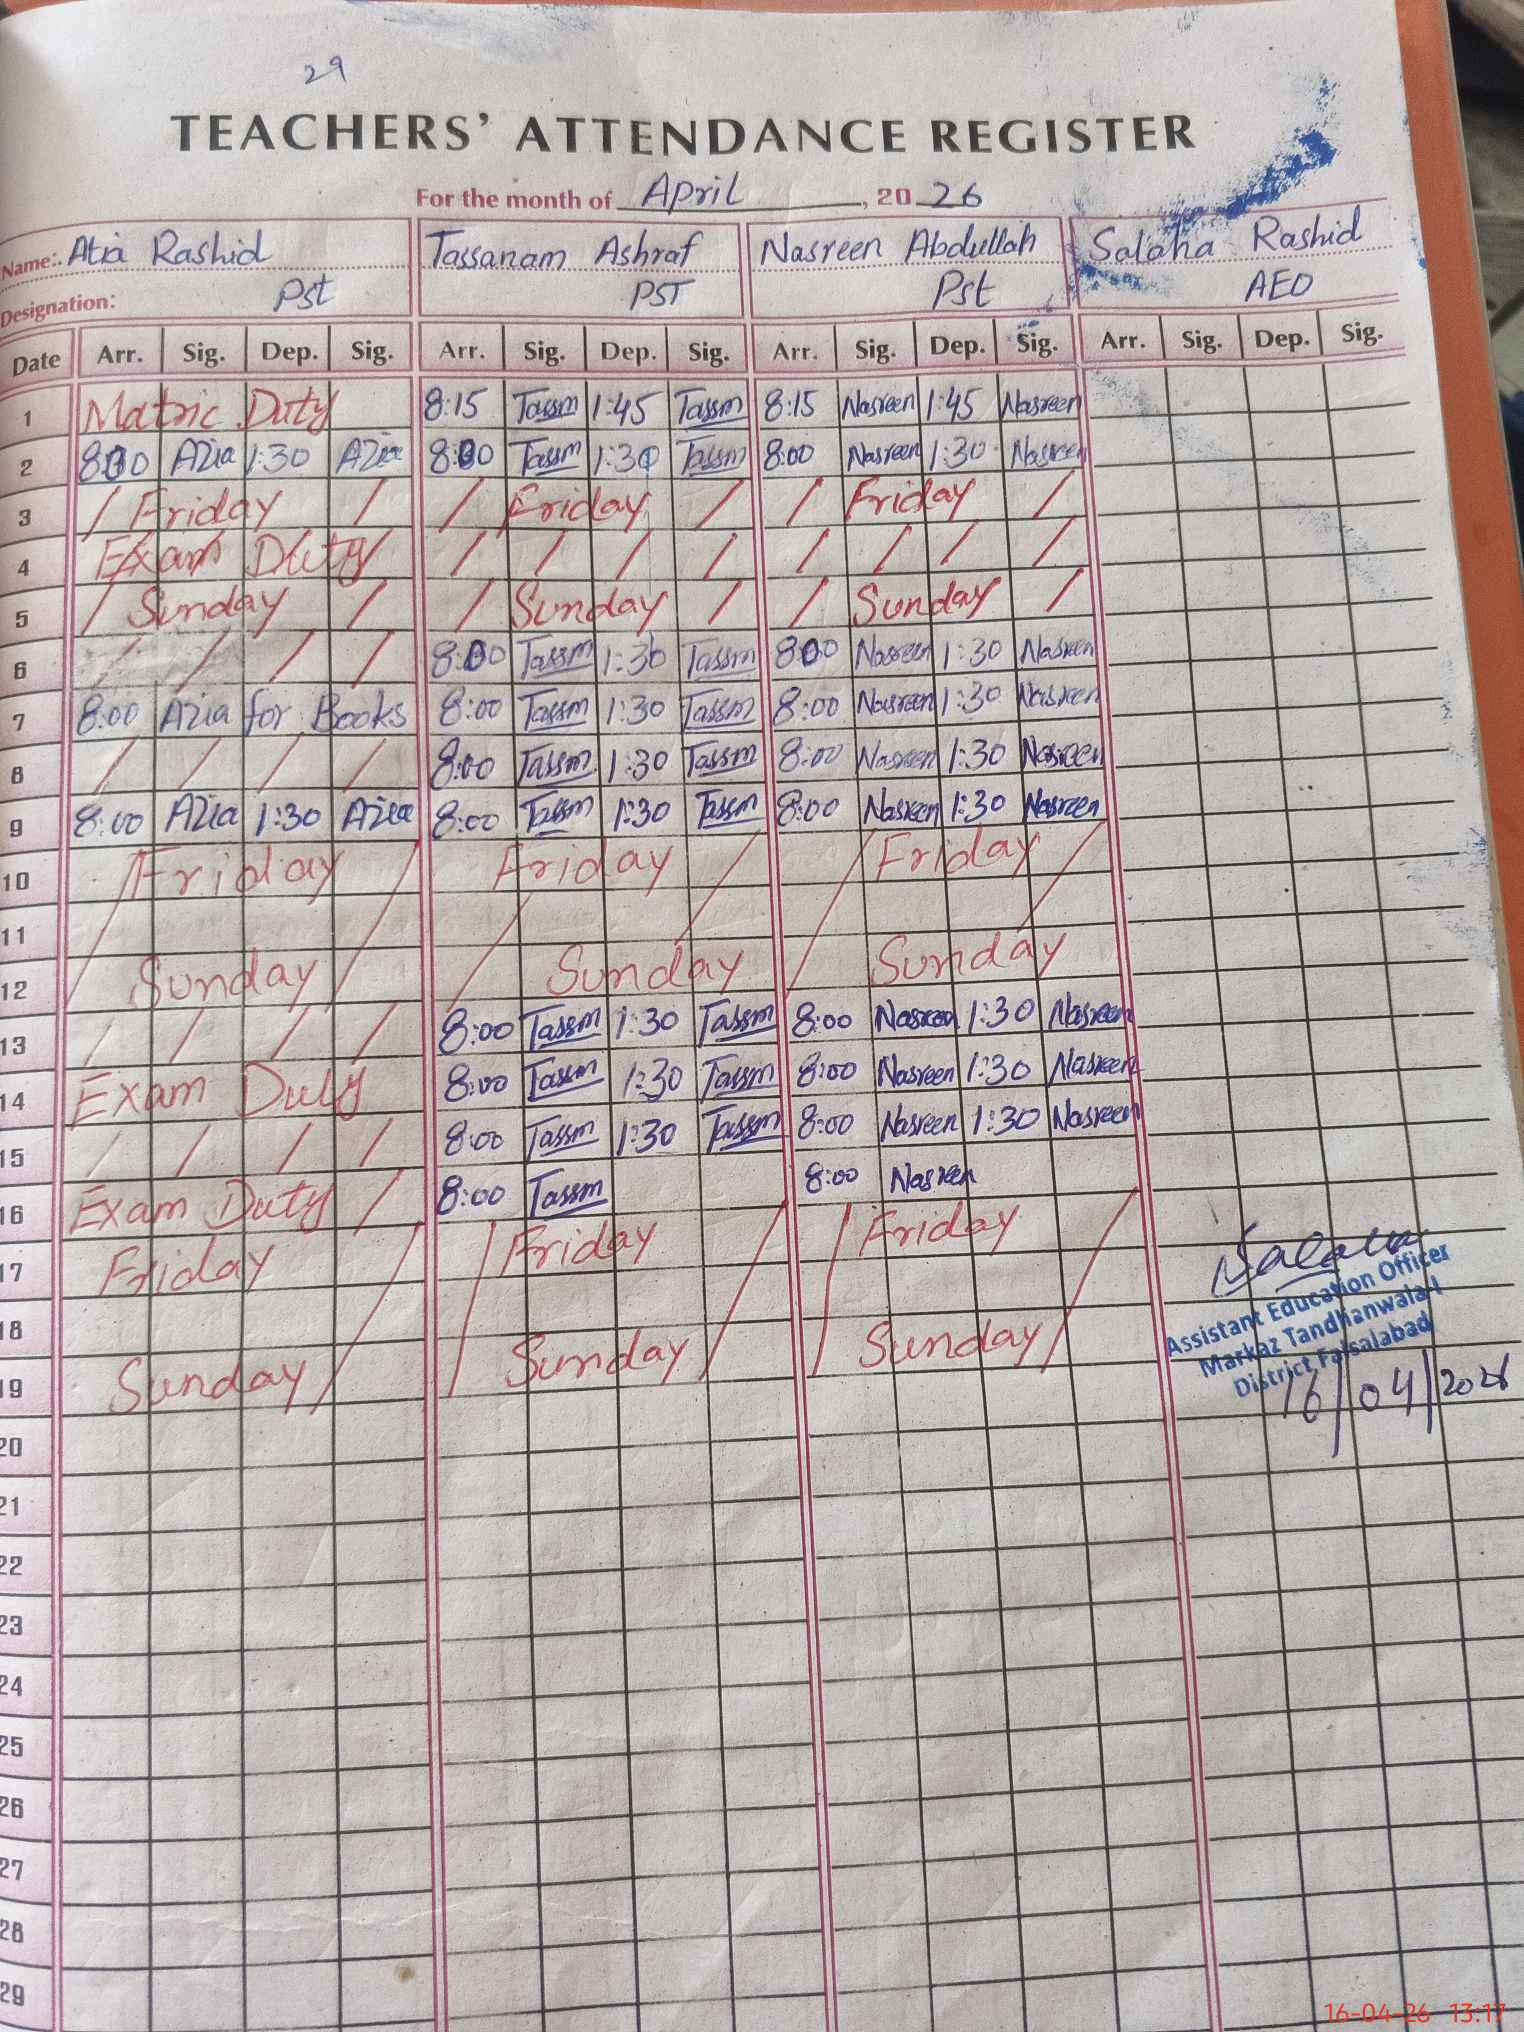 29
TEACHERS' ATTENDANCE REGISTER
For the month of April, 2026
Name: Atia Rashid Tassanam Ashraf Nasreen Abdullah Salaha Rashid
Designation: Pst PST Pst AEO
Date Arr. Sig. Dep. Sig. Arr. Sig. Dep. Sig. Arr. Sig. Dep. Sig. Arr. Sig. Dep. Sig.
1 Matric Duty 8:15 Tassm 1:45 Tassm 8:15 Nasreen 1:45 Nasreen
2 8:00 Azia 1:30 Azia 8:00 Tassm 1:30 Tassm 8:00 Nasreen 1:30 Nasreen
3 / Friday / / Friday / / Friday /
4 Exam Duty / / / / / / / /
5 / Sunday / / Sunday / / Sunday /
6 / / / / 8:00 Tassm 1:30 Tassm 8:00 Nasreen 1:30 Nasreen
7 8:00 Azia for Books 8:00 Tassm 1:30 Tassm 8:00 Nasreen 1:30 Nasreen
8 / / / / 8:00 Tassm 1:30 Tassm 8:00 Nasreen 1:30 Nasreen
9 8:00 Azia 1:30 Azia 8:00 Tassm 1:30 Tassm 8:00 Nasreen 1:30 Nasreen
10 Friday Friday Friday
11
12 Sunday Sunday Sunday
13 / / / / 8:00 Tassm 1:30 Tassm 8:00 Nasreen 1:30 Nasreen
14 Exam Duty 8:00 Tassm 1:30 Tassm 8:00 Nasreen 1:30 Nasreen
15 / / / / 8:00 Tassm 1:30 Tassm 8:00 Nasreen 1:30 Nasreen
16 Exam Duty / 8:00 Tassm 8:00 Nasreen
17 Friday Friday Friday
Salaha
Assistant Education Officer
18
Markaz Tandhanwala-I
District Faisalabad
19 Sunday Sunday Sunday
16/04/2026
20
21
22
23
24
25
26
27
28
29
16-04-26 13:17